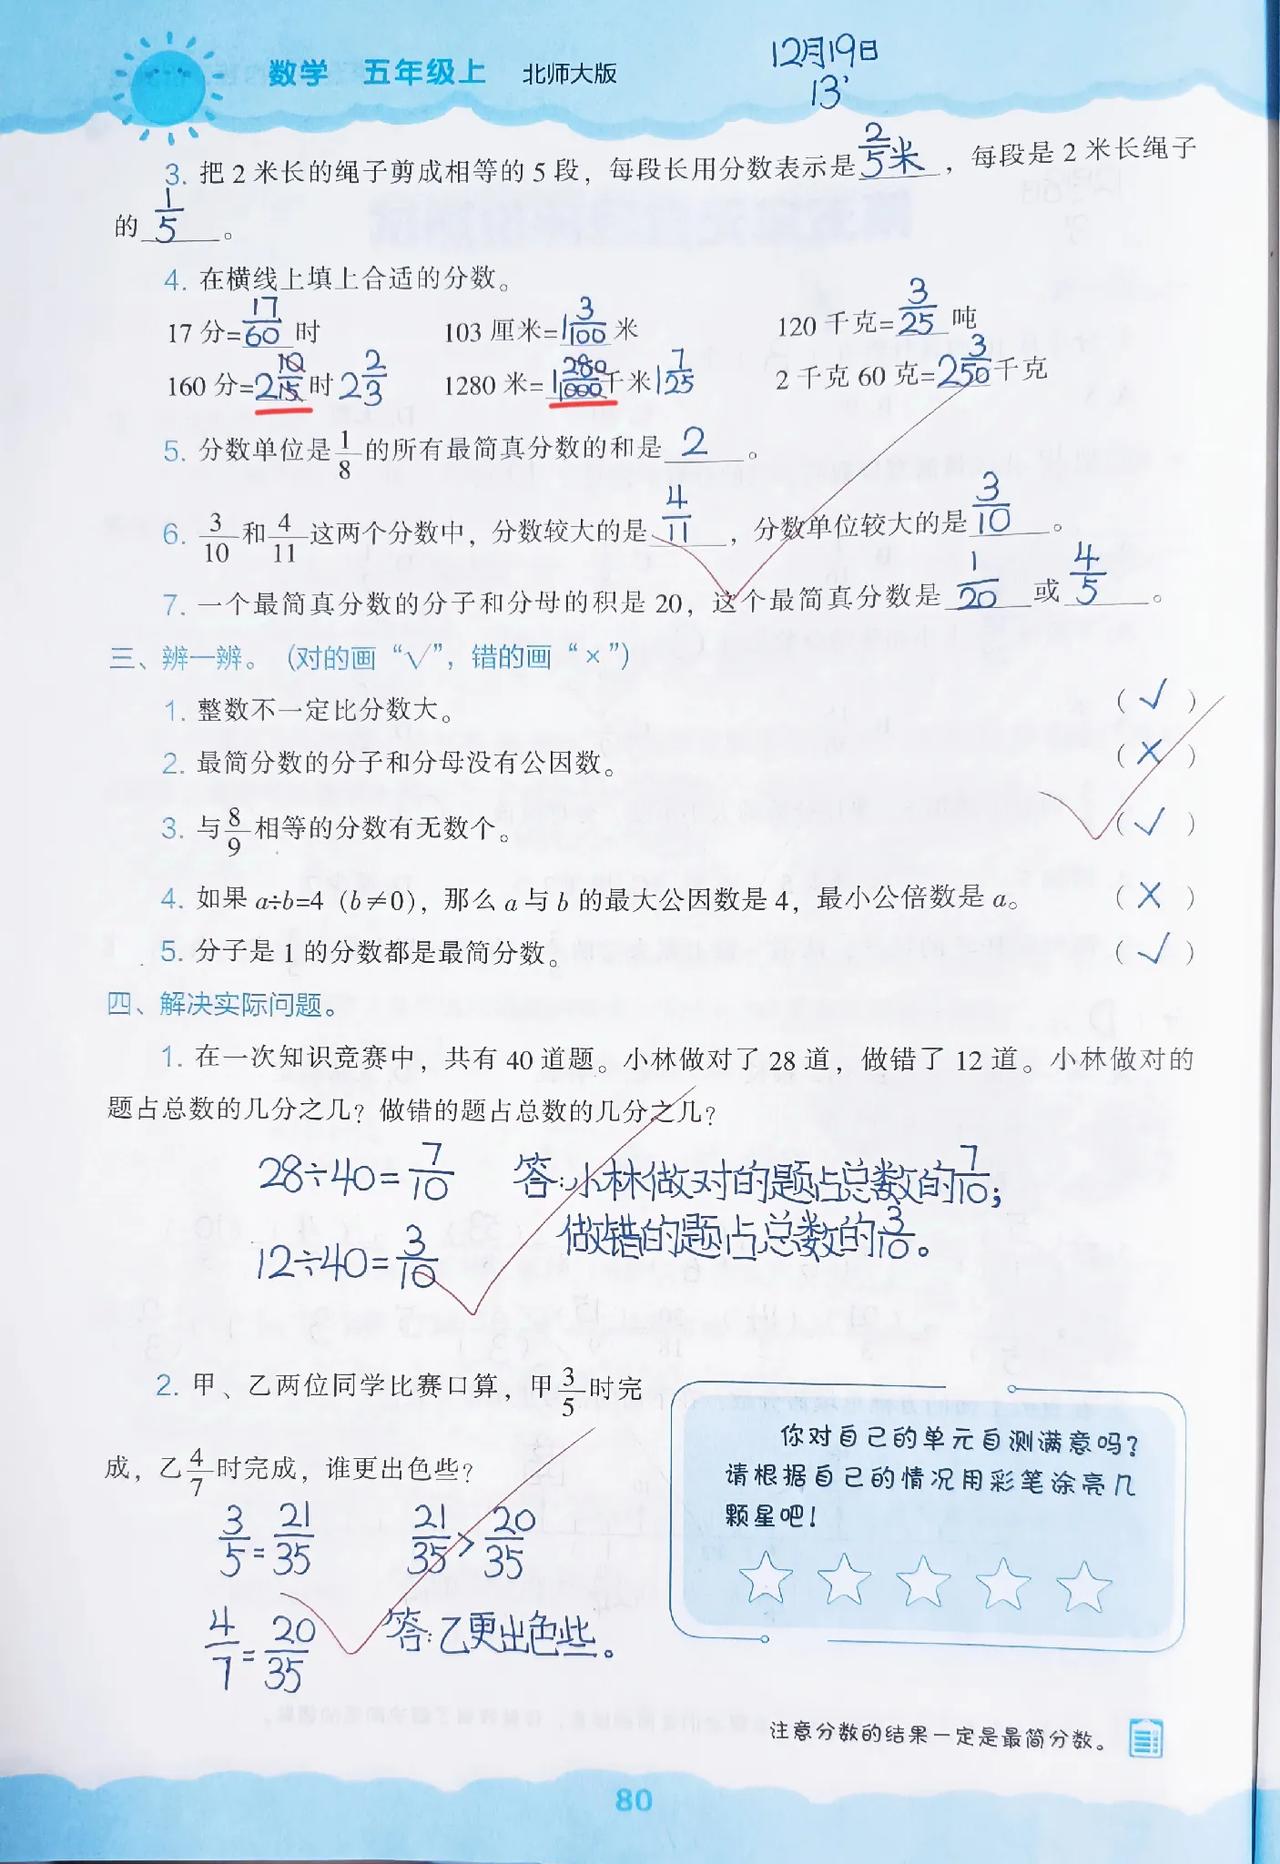 数学 五年级上 北师大版 12月19日
13'
3. 把2米长的绳子剪成相等的5段，每段长用分数表示是2/5米，每段是2米长绳子
的1/5。
4. 在横线上填上合适的分数。
17分=17/60时 103厘米=1 3/100米 120千克=3/25吨
160分=2 10/15时 2 2/3 1280米=1 280/1000千米 1 7/25 2千克60克=2 3/50千克
5. 分数单位是1/8的所有最简真分数的和是2。
6. 3/10和4/11这两个分数中，分数较大的是4/11，分数单位较大的是3/10。
7. 一个最简真分数的分子和分母的积是20，这个最简真分数是1/20或4/5。
三、辨一辨。（对的画“√”，错的画“×”）
1. 整数不一定比分数大。 （√）
2. 最简分数的分子和分母没有公因数。 （×）
3. 与8/9相等的分数有无数个。 （√）
4. 如果a÷b=4（b≠0），那么a与b的最大公因数是4，最小公倍数是a。 （×）
5. 分子是1的分数都是最简分数。 （√）
四、解决实际问题。
1. 在一次知识竞赛中，共有40道题。小林做对了28道，做错了12道。小林做对的
题占总数的几分之几？做错的题占总数的几分之几？
28÷40=7/10 答：小林做对的题占总数的7/10；
12÷40=3/10 做错的题占总数的3/10。
2. 甲、乙两位同学比赛口算，甲3/5时完
成，乙4/7时完成，谁更出色些？
3/5=21/35 21/35>20/35
4/7=20/35 答：乙更出色些。
你对自己的单元自测满意吗？
请根据自己的情况用彩笔涂亮几
颗星吧！
注意分数的结果一定是最简分数。
80